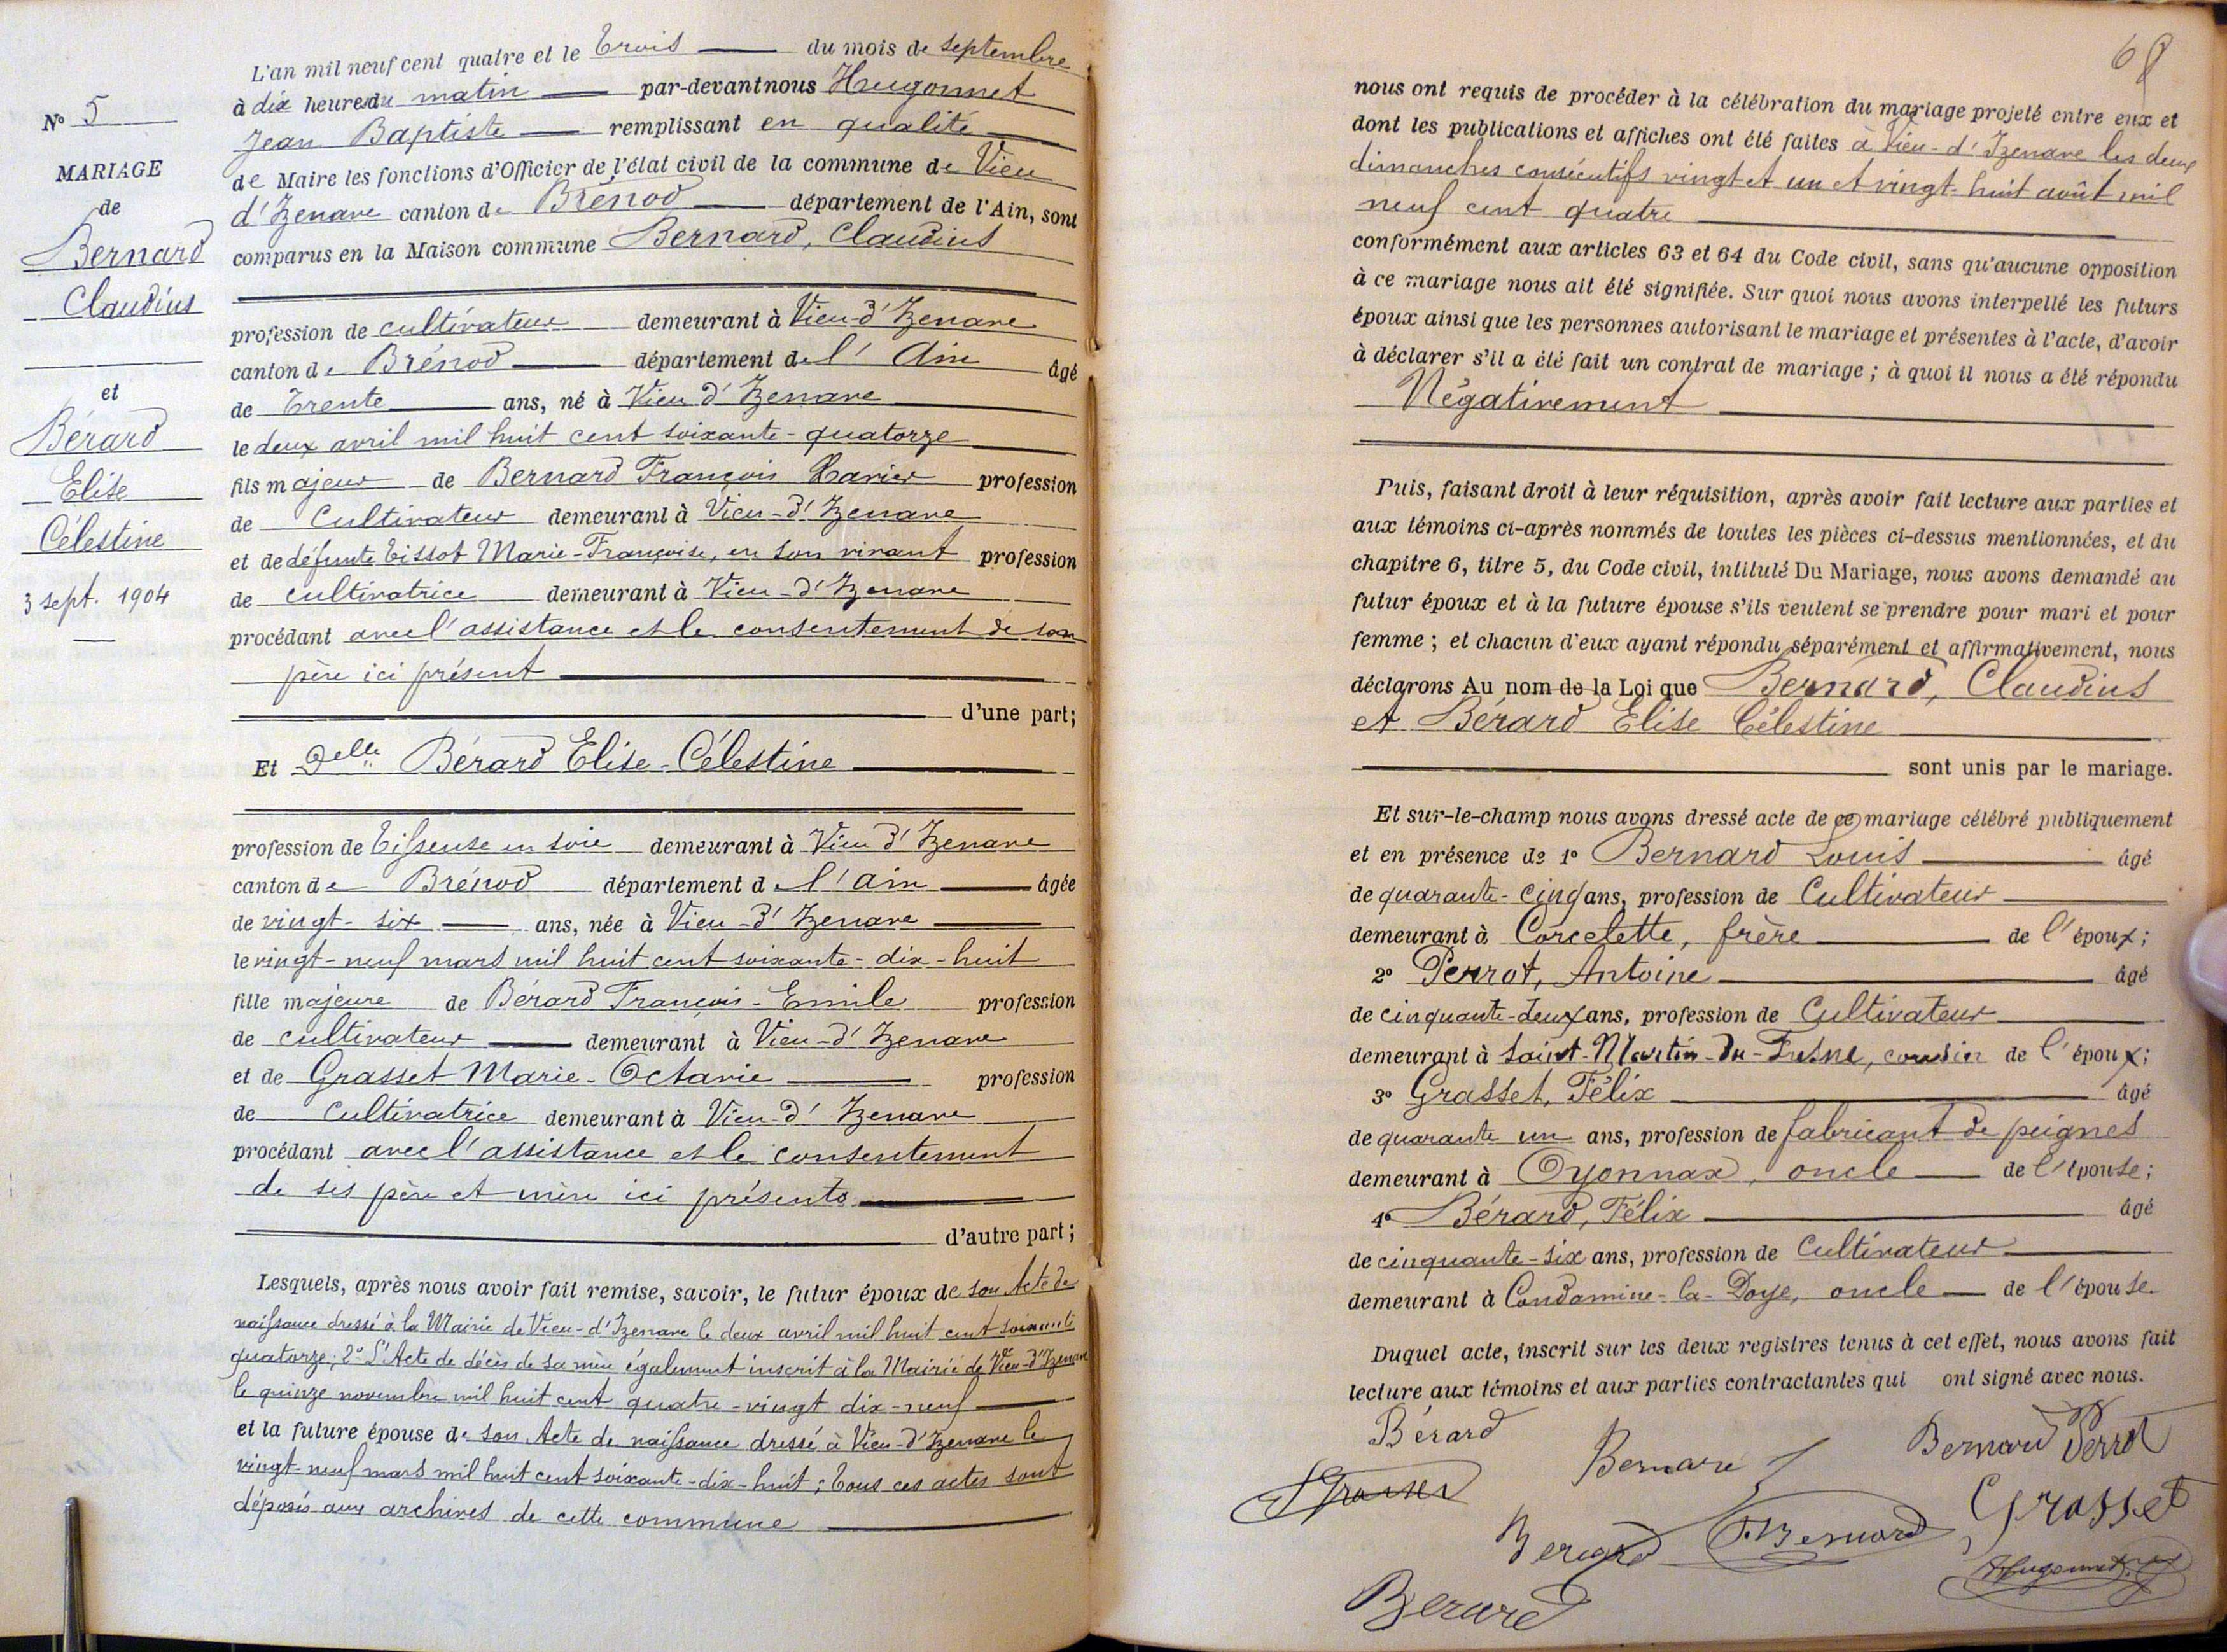 N° 5
MARIAGE
de
Bernard
Claudius
et
Bérard
Elise
Célestine
3 sept. 1904
L'an mil neuf cent quatre et le Trois du mois de septembre
à dix heures du matin par-devant nous Hugonnet
Jean Baptiste remplissant en qualité
de Maire les fonctions d'Officier de l'état civil de la commune de Vieu
d'Izenave canton de Brénod département de l'Ain, sont
comparus en la Maison commune Bernard, Claudius
profession de cultivateur demeurant à Vieu-d'Izenave
canton de Brénod département de l'Ain âgé
de Trente ans, né à Vieu d'Izenave
le deux avril mil huit cent soixante-quatorze
fils majeur de Bernard François Xavier profession
de Cultivateur demeurant à Vieu-d'Izenave
et de défunte Tissot Marie-Françoise, en son vivant profession
de cultivatrice demeurant à Vieu-d'Izenave
procédant avec l'assistance et le consentement de son
père ici présent
d'une part;
Et Delle Bérard Elise-Célestine
profession de Tisseuse en soie demeurant à Vieu d'Izenave
canton de Brénod département de l'ain âgée
de vingt-six ans, née à Vieu-d'Izenave
le vingt-neuf mars mil huit cent soixante-dix-huit
fille majeure de Bérard François-Emile profession
de cultivateur demeurant à Vieu-d'Izenave
et de Grasset Marie-Octavie profession
de Cultivatrice demeurant à Vieu-d'Izenave
procédant avec l'assistance et le consentement
de ses père et mère ici présents
d'autre part;
Lesquels, après nous avoir fait remise, savoir, le futur époux de son Acte de
naissance dressé à la Mairie de Vieu-d'Izenave le deux avril mil huit cent soixante
quatorze; 2° L'Acte de décès de sa mère également inscrit à la Mairie de Vieu-d'Izenave
le quinze novembre mil huit cent quatre-vingt dix-neuf
et la future épouse de son Acte de naissance dressé à Vieu-d'Izenave le
vingt-neuf mars mil huit cent soixante-dix-huit; Tous ces actes sont
déposés aux archives de cette commune
68
nous ont requis de procéder à la célébration du mariage projeté entre eux et
dont les publications et affiches ont été faites à Vieu-d'Izenave les deux
dimanches consécutifs vingt et un et vingt-huit août mil
neuf cent quatre
conformément aux articles 63 et 64 du Code civil, sans qu'aucune opposition
à ce mariage nous ait été signifiée. Sur quoi nous avons interpellé les futurs
époux ainsi que les personnes autorisant le mariage et présentes à l'acte, d'avoir
à déclarer s'il a été fait un contrat de mariage; à quoi il nous a été répondu
Négativement
Puis, faisant droit à leur réquisition, après avoir fait lecture aux parties et
aux témoins ci-après nommés de toutes les pièces ci-dessus mentionnées, et du
chapitre 6, titre 5, du Code civil, intitulé Du Mariage, nous avons demandé au
futur époux et à la future épouse s'ils veulent se prendre pour mari et pour
femme; et chacun d'eux ayant répondu séparément et affirmativement, nous
déclarons Au nom de la Loi que Bernard, Claudius
et Bérard Elise Célestine
sont unis par le mariage.
Et sur-le-champ nous avons dressé acte de ce mariage célébré publiquement
et en présence de 1° Bernard Louis âgé
de quarante-cinq ans, profession de Cultivateur
demeurant à Corcelette, frère de l'époux;
2° Perrot, Antoine âgé
de cinquante-deux ans, profession de Cultivateur
demeurant à Saint-Martin-du-Fresne, cousin de l'époux;
3° Grasset, Félix âgé
de quarante un ans, profession de fabricant de peignes
demeurant à Oyonnax, oncle de l'épouse;
4° Bérard, Félix âgé
de cinquante-six ans, profession de Cultivateur
demeurant à Condamine-la-Doye, oncle de l'épouse.
Duquel acte, inscrit sur les deux registres tenus à cet effet, nous avons fait
lecture aux témoins et aux parties contractantes qui ont signé avec nous.
Bérard Bernard Bernard Perrot
Grasset
Berard Bernard
Hugonnet
Berard